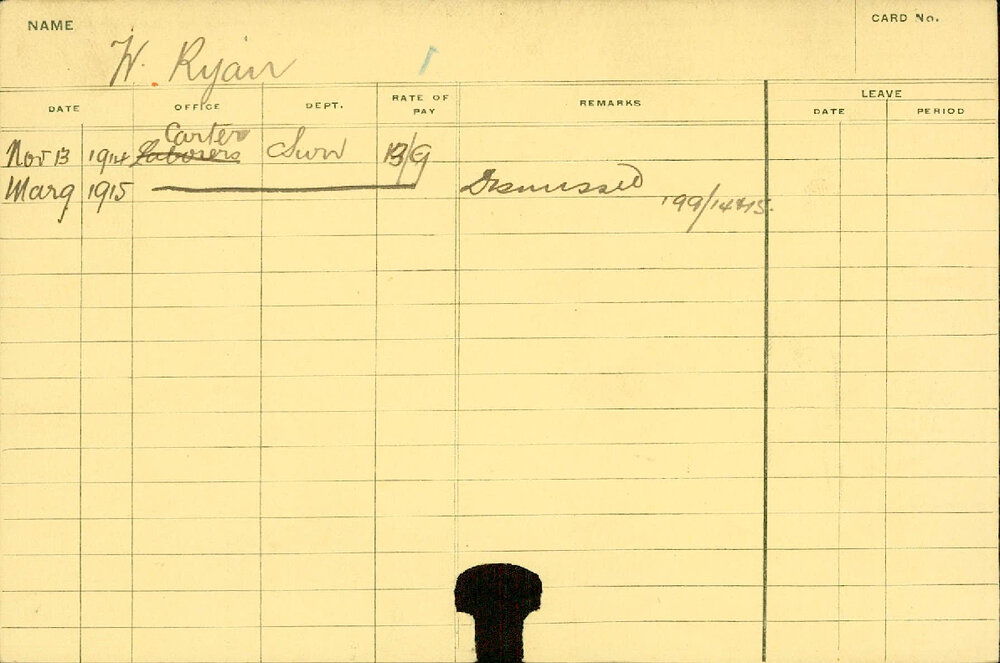 NAME
CARD No.
W. Ryan
DATE OFFICE DEPT. RATE OF PAY REMARKS LEAVE
DATE PERIOD
Carter
Nov 13 1914 Laborers Surv 13/9
Mar 9 1915 Dismissed
199/14&15.